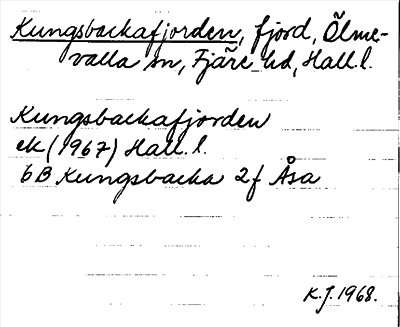 Kungsbackafjorden, fjord, Ölme-
valla sn, Fjäre hd, Hall. l.
Kungsbackafjorden
ek (1967) Hall. l.
6B Kungsbacka 2f Åsa
K.J. 1968.